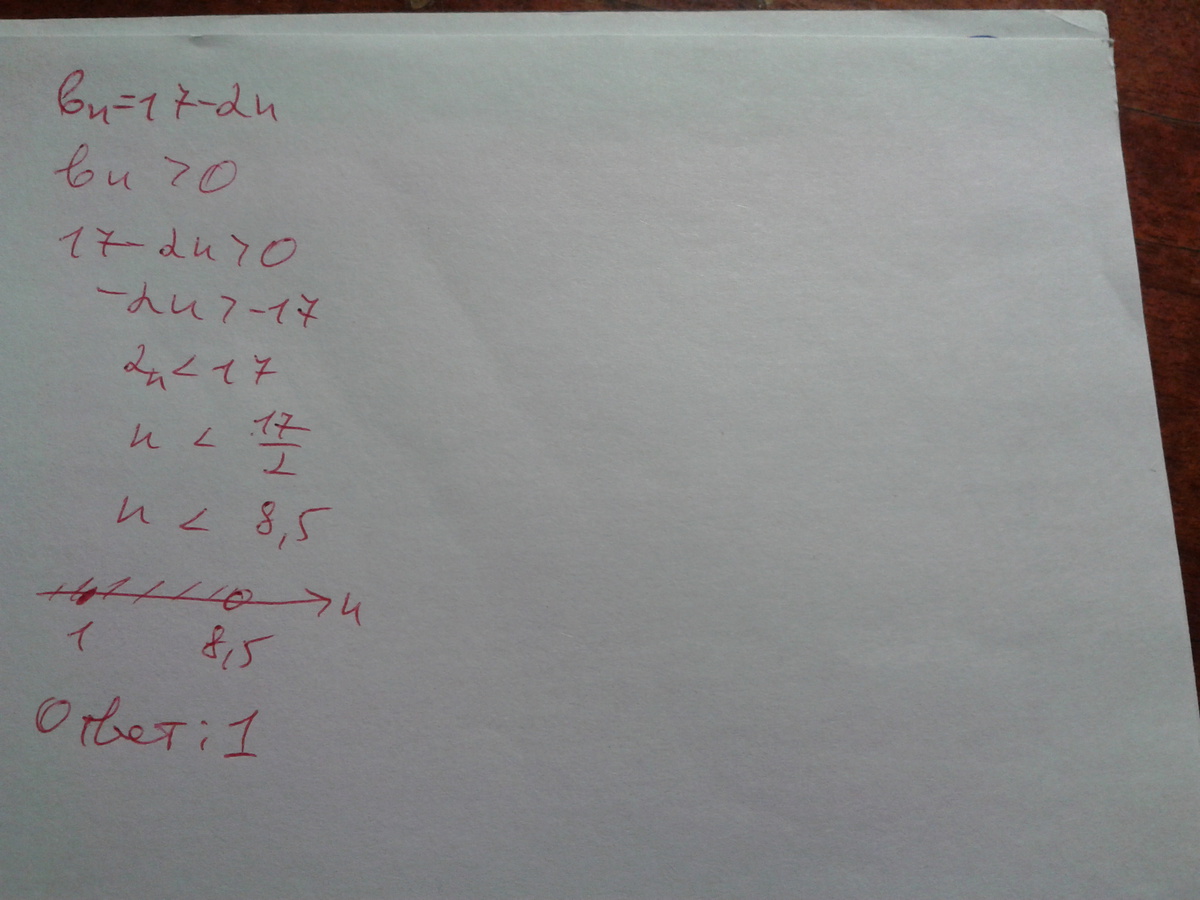 вn=17-2n
вn >0
17-2n>0
-2n>-17
2n<17
n < 17/2
n < 8,5
n
1 8,5
Ответ: 1